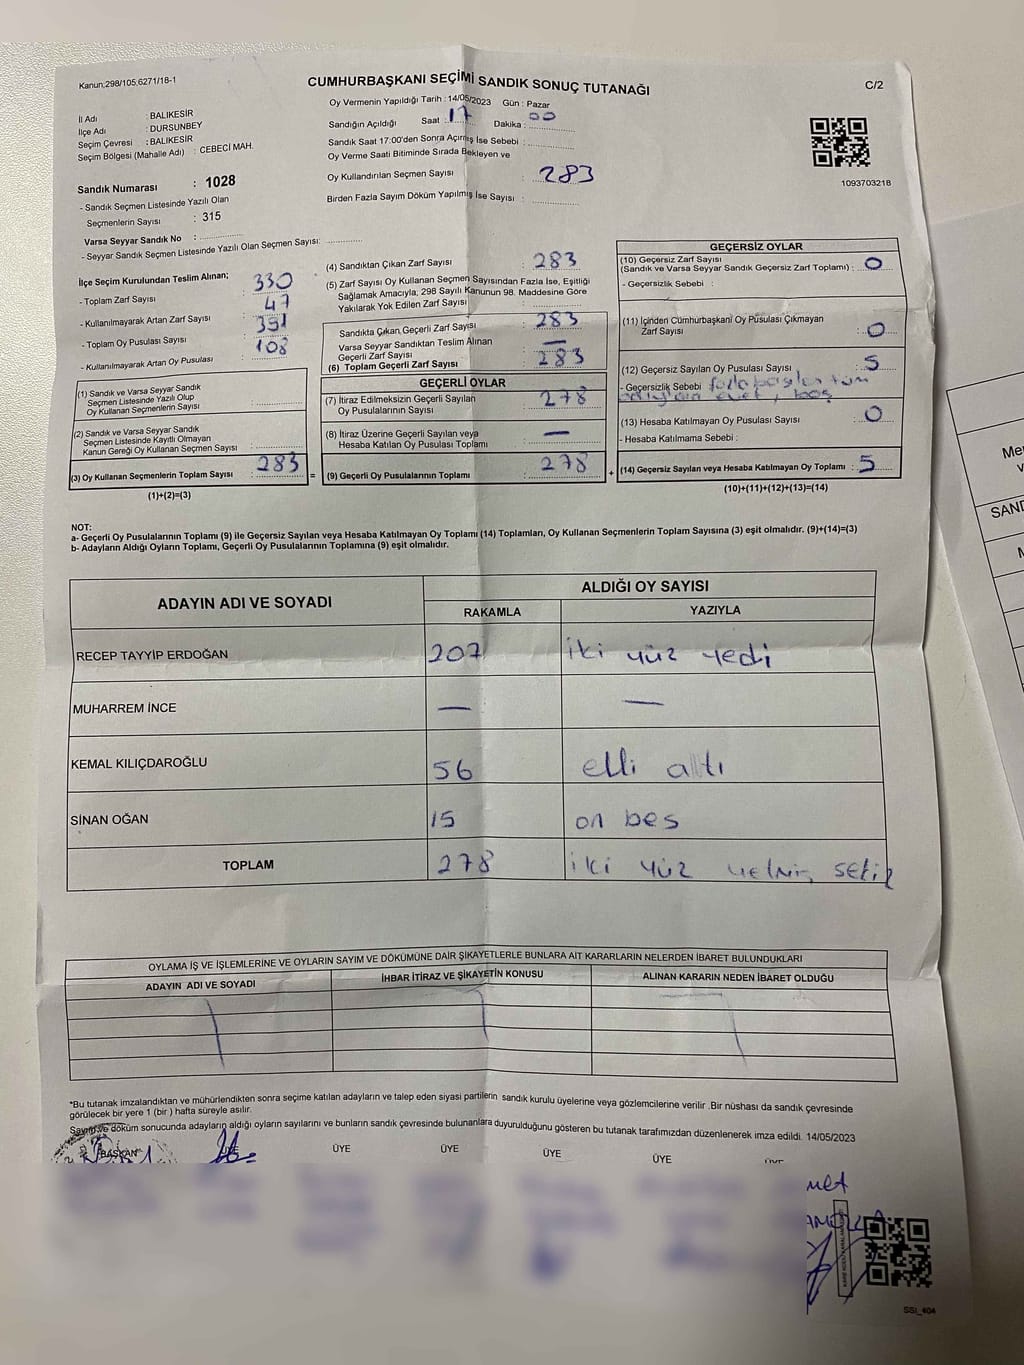 Kanun;298/105;6271/18-1
CUMHURBAŞKANI SEÇİMİ SANDIK SONUÇ TUTANAĞI
C/2
İl Adı : BALIKESİR
İlçe Adı : DURSUNBEY
Seçim Çevresi : BALIKESİR
Seçim Bölgesi (Mahalle Adı) : CEBECİ MAH.
Sandık Numarası : 1028
- Sandık Seçmen Listesinde Yazılı Olan
Seçmenlerin Sayısı : 315
Varsa Seyyar Sandık No :
- Seyyar Sandık Seçmen Listesinde Yazılı Olan Seçmen Sayısı:
Oy Vermenin Yapıldığı Tarih : 14/05/2023 Gün : Pazar
Sandığın Açıldığı Saat : 17 Dakika : 00
Sandık Saat 17:00'den Sonra Açımış İse Sebebi :
Oy Verme Saati Bitiminde Sırada Bekleyen ve
Oy Kullandırılan Seçmen Sayısı : 283
Birden Fazla Sayım Döküm Yapılmış İse Sayısı :
1093703218
İlçe Seçim Kurulundan Teslim Alınan;
- Toplam Zarf Sayısı : 330
- Kullanılmayarak Artan Zarf Sayısı : 47
- Toplam Oy Pusulası Sayısı : 391
- Kullanılmayarak Artan Oy Pusulası : 108
(1) Sandık ve Varsa Seyyar Sandık
Seçmen Listesinde Yazılı Olup
Oy Kullanan Seçmenlerin Sayısı :
(2) Sandık ve Varsa Seyyar Sandık
Seçmen Listesinde Kayıtlı Olmayan
Kanun Gereği Oy Kullanan Seçmen Sayısı :
(3) Oy Kullanan Seçmenlerin Toplam Sayısı : 283 =
(1)+(2)=(3)
(4) Sandıktan Çıkan Zarf Sayısı : 283
(5) Zarf Sayısı Oy Kullanan Seçmen Sayısından Fazla İse, Eşitliği
Sağlamak Amacıyla; 298 Sayılı Kanunun 98. Maddesine Göre
Yakılarak Yok Edilen Zarf Sayısı :
Sandıkta Çıkan Geçerli Zarf Sayısı : 283
Varsa Seyyar Sandıktan Teslim Alınan
Geçerli Zarf Sayısı : —
(6) Toplam Geçerli Zarf Sayısı : 283
GEÇERLİ OYLAR
(7) İtiraz Edilmeksizin Geçerli Sayılan
Oy Pusulalarının Sayısı : 278
(8) İtiraz Üzerine Geçerli Sayılan veya
Hesaba Katılan Oy Pusulası Toplamı : —
(9) Geçerli Oy Pusulalarının Toplamı : 278 +
GEÇERSİZ OYLAR
(10) Geçersiz Zarf Sayısı
(Sandık ve Varsa Seyyar Sandık Geçersiz Zarf Toplamı) : 0
- Geçersizlik Sebebi :
(11) İçinden Cumhurbaşkanı Oy Pusulası Çıkmayan
Zarf Sayısı : 0
(12) Geçersiz Sayılan Oy Pusulası Sayısı : 5
- Geçersizlik Sebebi : fazla basılan tüm
evet, boş
(13) Hesaba Katılmayan Oy Pusulası Sayısı : 0
- Hesaba Katılmama Sebebi :
(14) Geçersiz Sayılan veya Hesaba Katılmayan Oy Toplamı : 5
(10)+(11)+(12)+(13)=(14)
NOT:
a- Geçerli Oy Pusulalarının Toplamı (9) ile Geçersiz Sayılan veya Hesaba Katılmayan Oy Toplamı (14) Toplamları, Oy Kullanan Seçmenlerin Toplam Sayısına (3) eşit olmalıdır. (9)+(14)=(3)
b- Adayların Aldığı Oyların Toplamı, Geçerli Oy Pusulalarının Toplamına (9) eşit olmalıdır.
ADAYIN ADI VE SOYADI
ALDIĞI OY SAYISI
RAKAMLA YAZIYLA
RECEP TAYYİP ERDOĞAN 207 iki yüz yedi
MUHARREM İNCE — —
KEMAL KILIÇDAROĞLU 56 elli altı
SİNAN OĞAN 15 on bes
TOPLAM 278 iki yüz yetmiş sekiz
OYLAMA İŞ VE İŞLEMLERİNE VE OYLARIN SAYIM VE DÖKÜMÜNE DAİR ŞİKAYETLERLE BUNLARA AİT KARARLARIN NELERDEN İBARET BULUNDUKLARI
ADAYIN ADI VE SOYADI İHBAR İTİRAZ VE ŞİKAYETİN KONUSU ALINAN KARARIN NEDEN İBARET OLDUĞU
*Bu tutanak imzalandıktan ve mühürlendikten sonra seçime katılan adayların ve talep eden siyasi partilerin sandık kurulu üyelerine veya gözlemcilerine verilir .Bir nüshası da sandık çevresinde
görülecek bir yere 1 (bir ) hafta süreyle asılır.
Sayım ve döküm sonucunda adayların aldığı oyların sayılarını ve bunların sandık çevresinde bulunanlara duyurulduğunu gösteren bu tutanak tarafımızdan düzenlenerek imza edildi. 14/05/2023
BAŞKAN ÜYE ÜYE ÜYE ÜYE ÜYE
SSİ_404